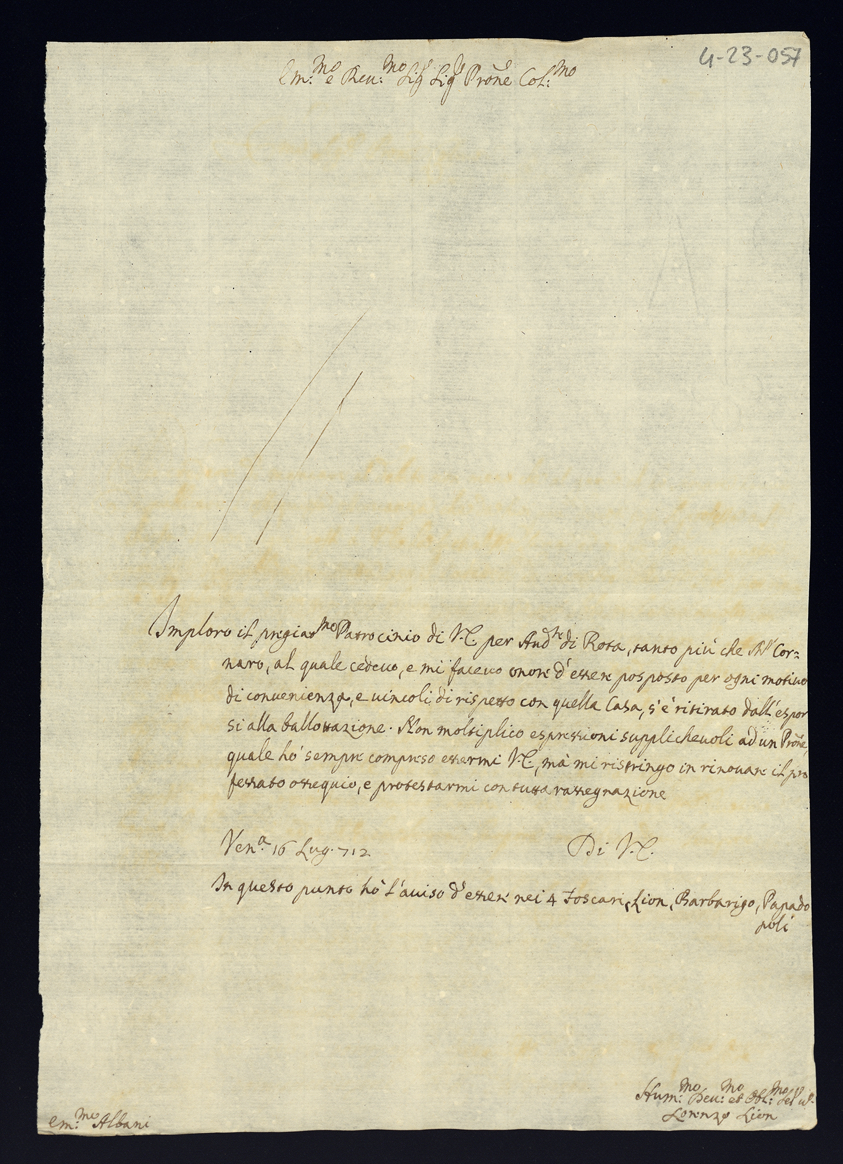 4-23-057
Em:mo e Reu:mo Sig.r Sig.r Prōne Col:mo
Imploro il pregiatmo Patrocinio di V.E. per Audre di Rota, tanto più che Mr Cor=
naro, al quale cedeuo, e mi faceuo onore d'essere posposto per ogni motiuo
di conuenienza, e uincoli di rispetto con quella Casa, s'è ritirato dall'espor
si alla ballottazione. Non moltiplico espressioni supplicheuoli ad un Prōne,
quale hò sempre compreso essermi V.E, mà mi ristringo in rinouare il pro
fessato ossequio, e protestarmi con tutta rassegnazione
Ven.a 16 Lug. 712
Di V.E.
In questo punto hò l'auiso d'essere nei 4 Foscari, Lion, Barbarigo, Papado
poli
Hum:mo Deu:mo et Obl:mo
Lorenzo Lion
Em:mo Albani